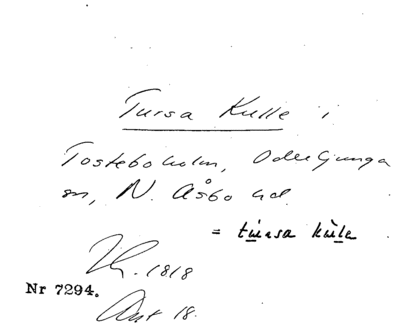 Tursa Kulle i
Tosteboholm, Oderljunga
sn, N. Åsbo hd.
= tursa kule
1818
Nr 7294.
Ant 18.